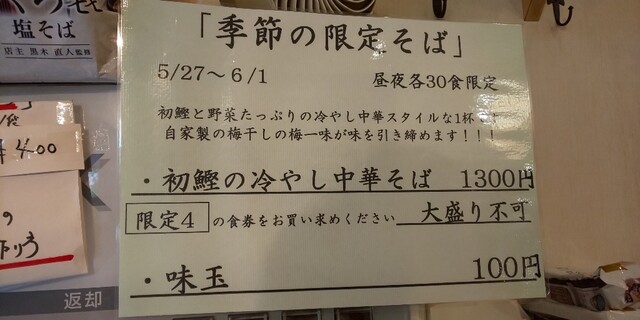 塩そば
店主 黒木 直人監修
「季節の限定そば」
5/27～6/1　昼夜各30食限定
初鰹と野菜たっぷりの冷やし中華スタイルな1杯です
自家製の梅干しの梅一味が味を引き締めます！！！
・初鰹の冷やし中華そば　1300円
限定4 の食券をお買い求めください　大盛り不可
・味玉　100円
食
400
の
返却